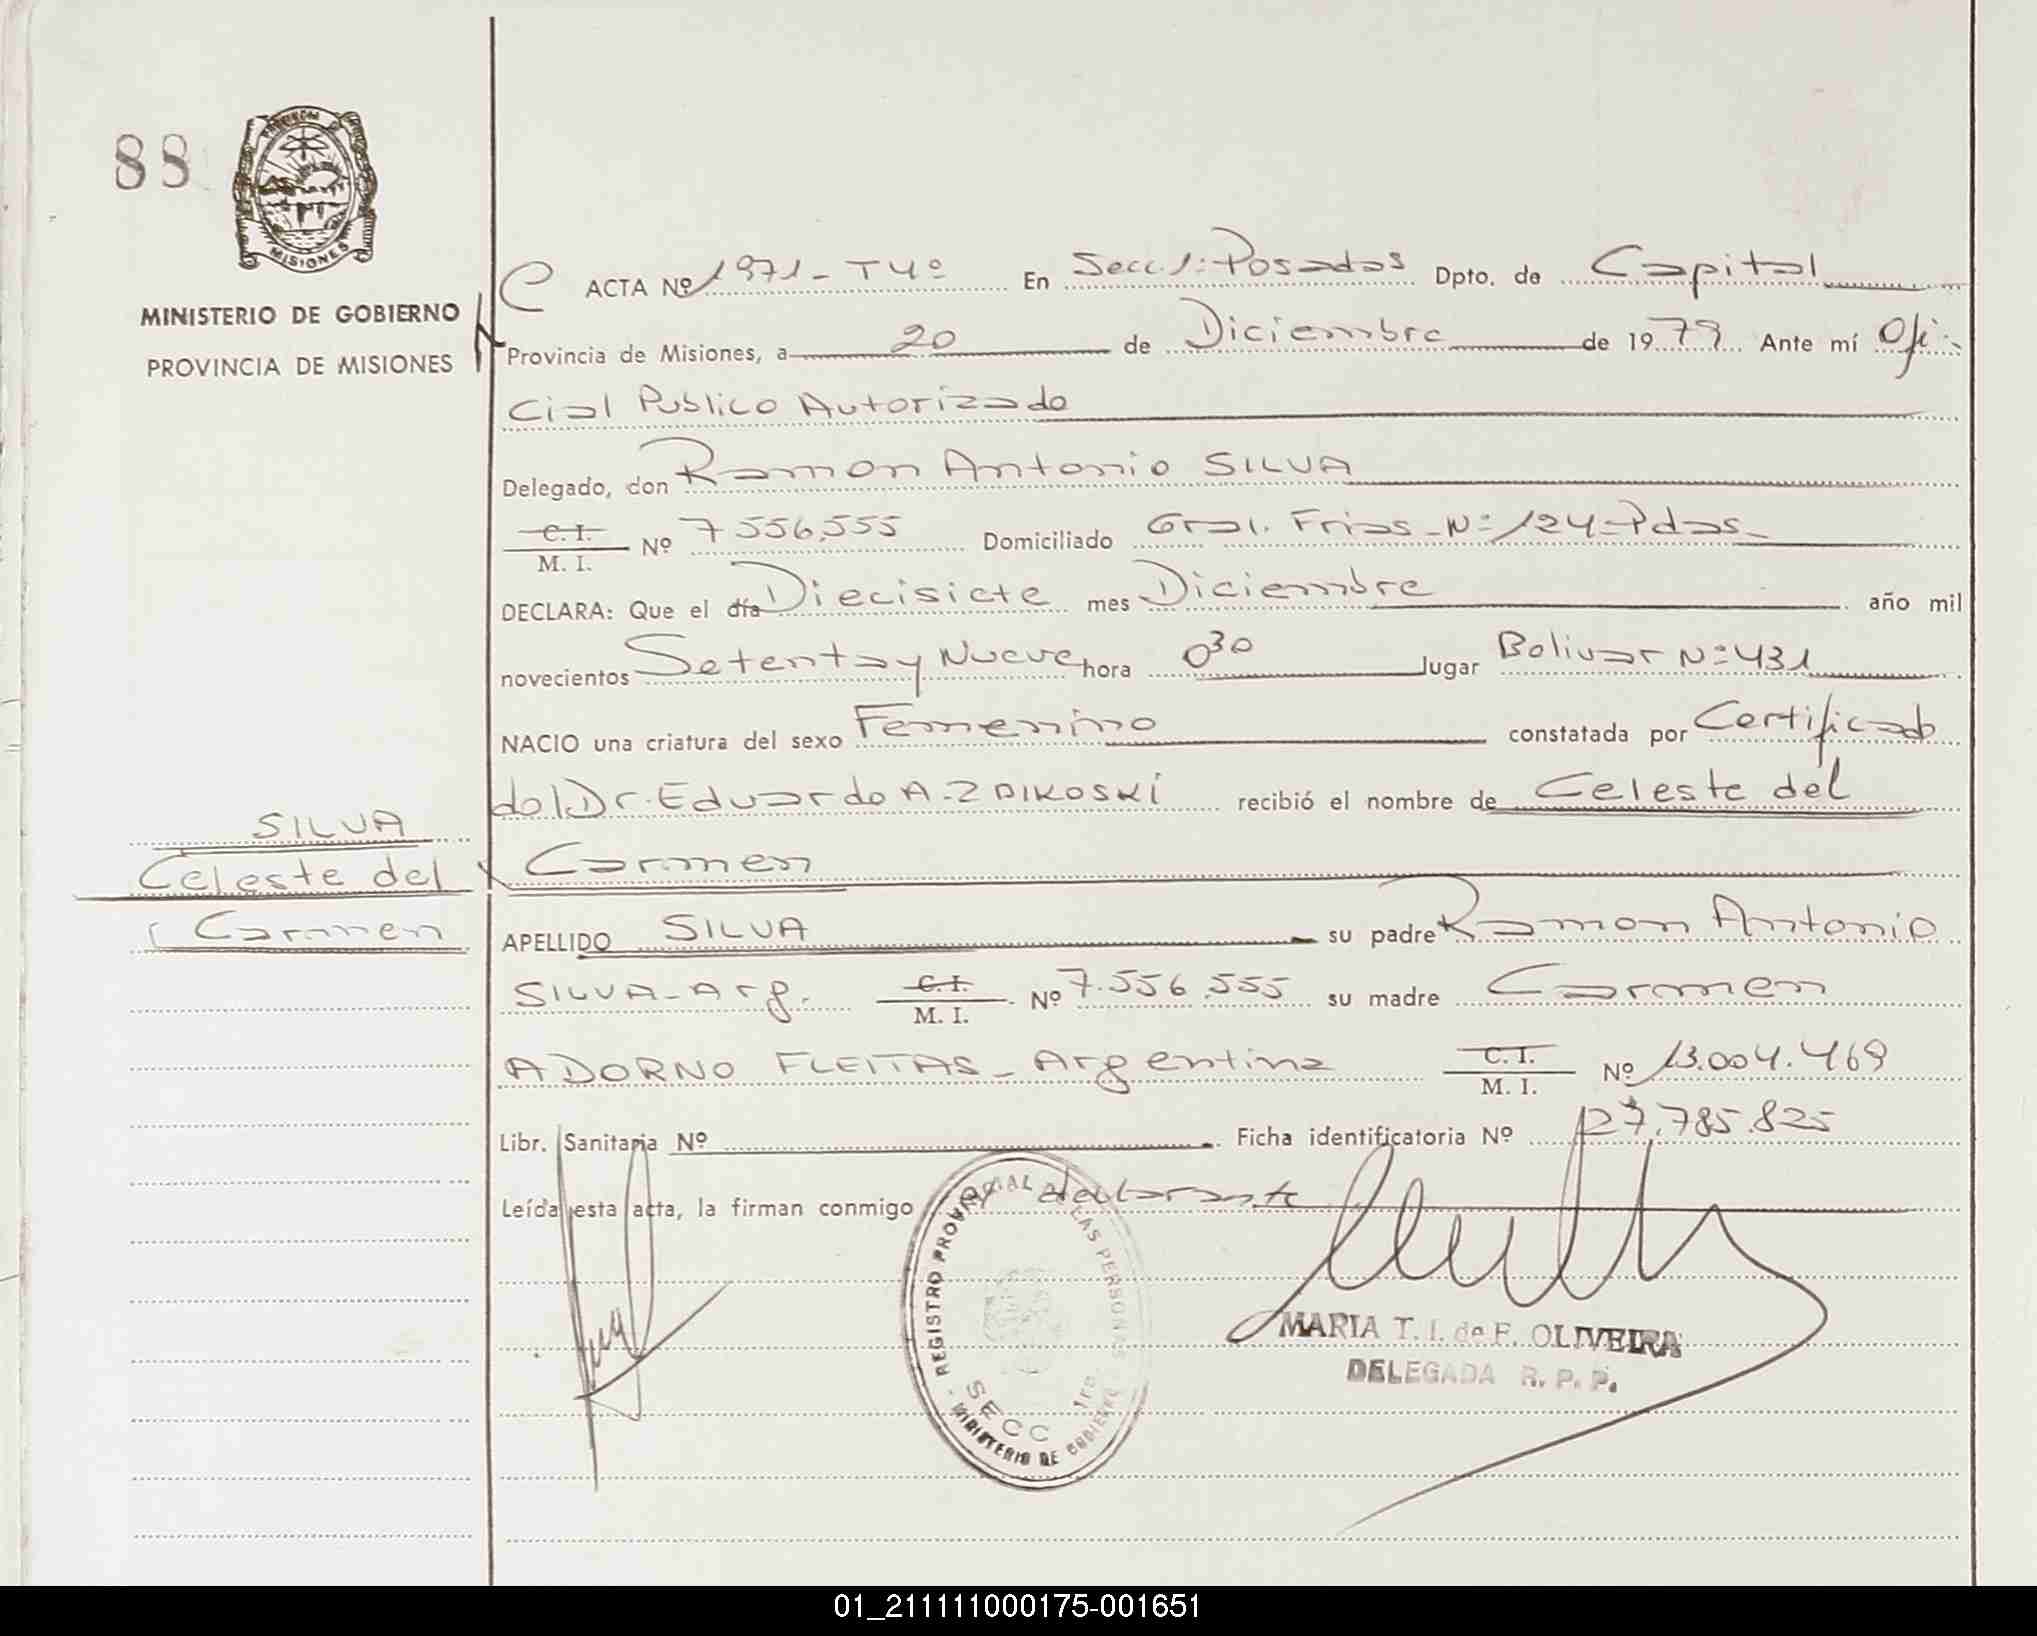 88
PROVINCIA DE
MISIONES
MINISTERIO DE GOBIERNO
PROVINCIA DE MISIONES
ACTA Nº 1971 - T4º En Secc. 1º: Posadas Dpto. de Capital
Provincia de Misiones, a 20 de Diciembre de 1979. Ante mí Ofi-
cial Publico Autorizado
Delegado, don Ramon Antonio SILVA
C. I.
M. I. Nº 7 556.555 Domiciliado Gral. Frias - Nº 124 - Pdas -
DECLARA: Que el día Diecisiete mes Diciembre año mil
novecientos Setenta y Nueve hora 0 30 lugar Bolivar Nº 431
NACIO una criatura del sexo Femenino constatada por Certificado
del Dr. Eduardo A. ZDIKOSKI recibió el nombre de Celeste del
Carmen
SILVA
Celeste del
Carmen
APELLIDO SILVA su padre Ramon Antonio
SILVA - Arg. C. I.
M. I. Nº 7.556.555 su madre Carmen
ADORNO FLEITAS - Argentina C. I.
M. I. Nº 13.004.469
Libr. Sanitaria Nº Ficha identificatoria Nº 27.785.825
Leída esta acta, la firman conmigo el declarante
REGISTRO PROVINCIAL DE LAS PERSONAS
SECC 1ra.
MINISTERIO DE GOBIERNO
MARIA T. I. de F. OLIVEIRA
DELEGADA R. P. P.
01_211111000175-001651